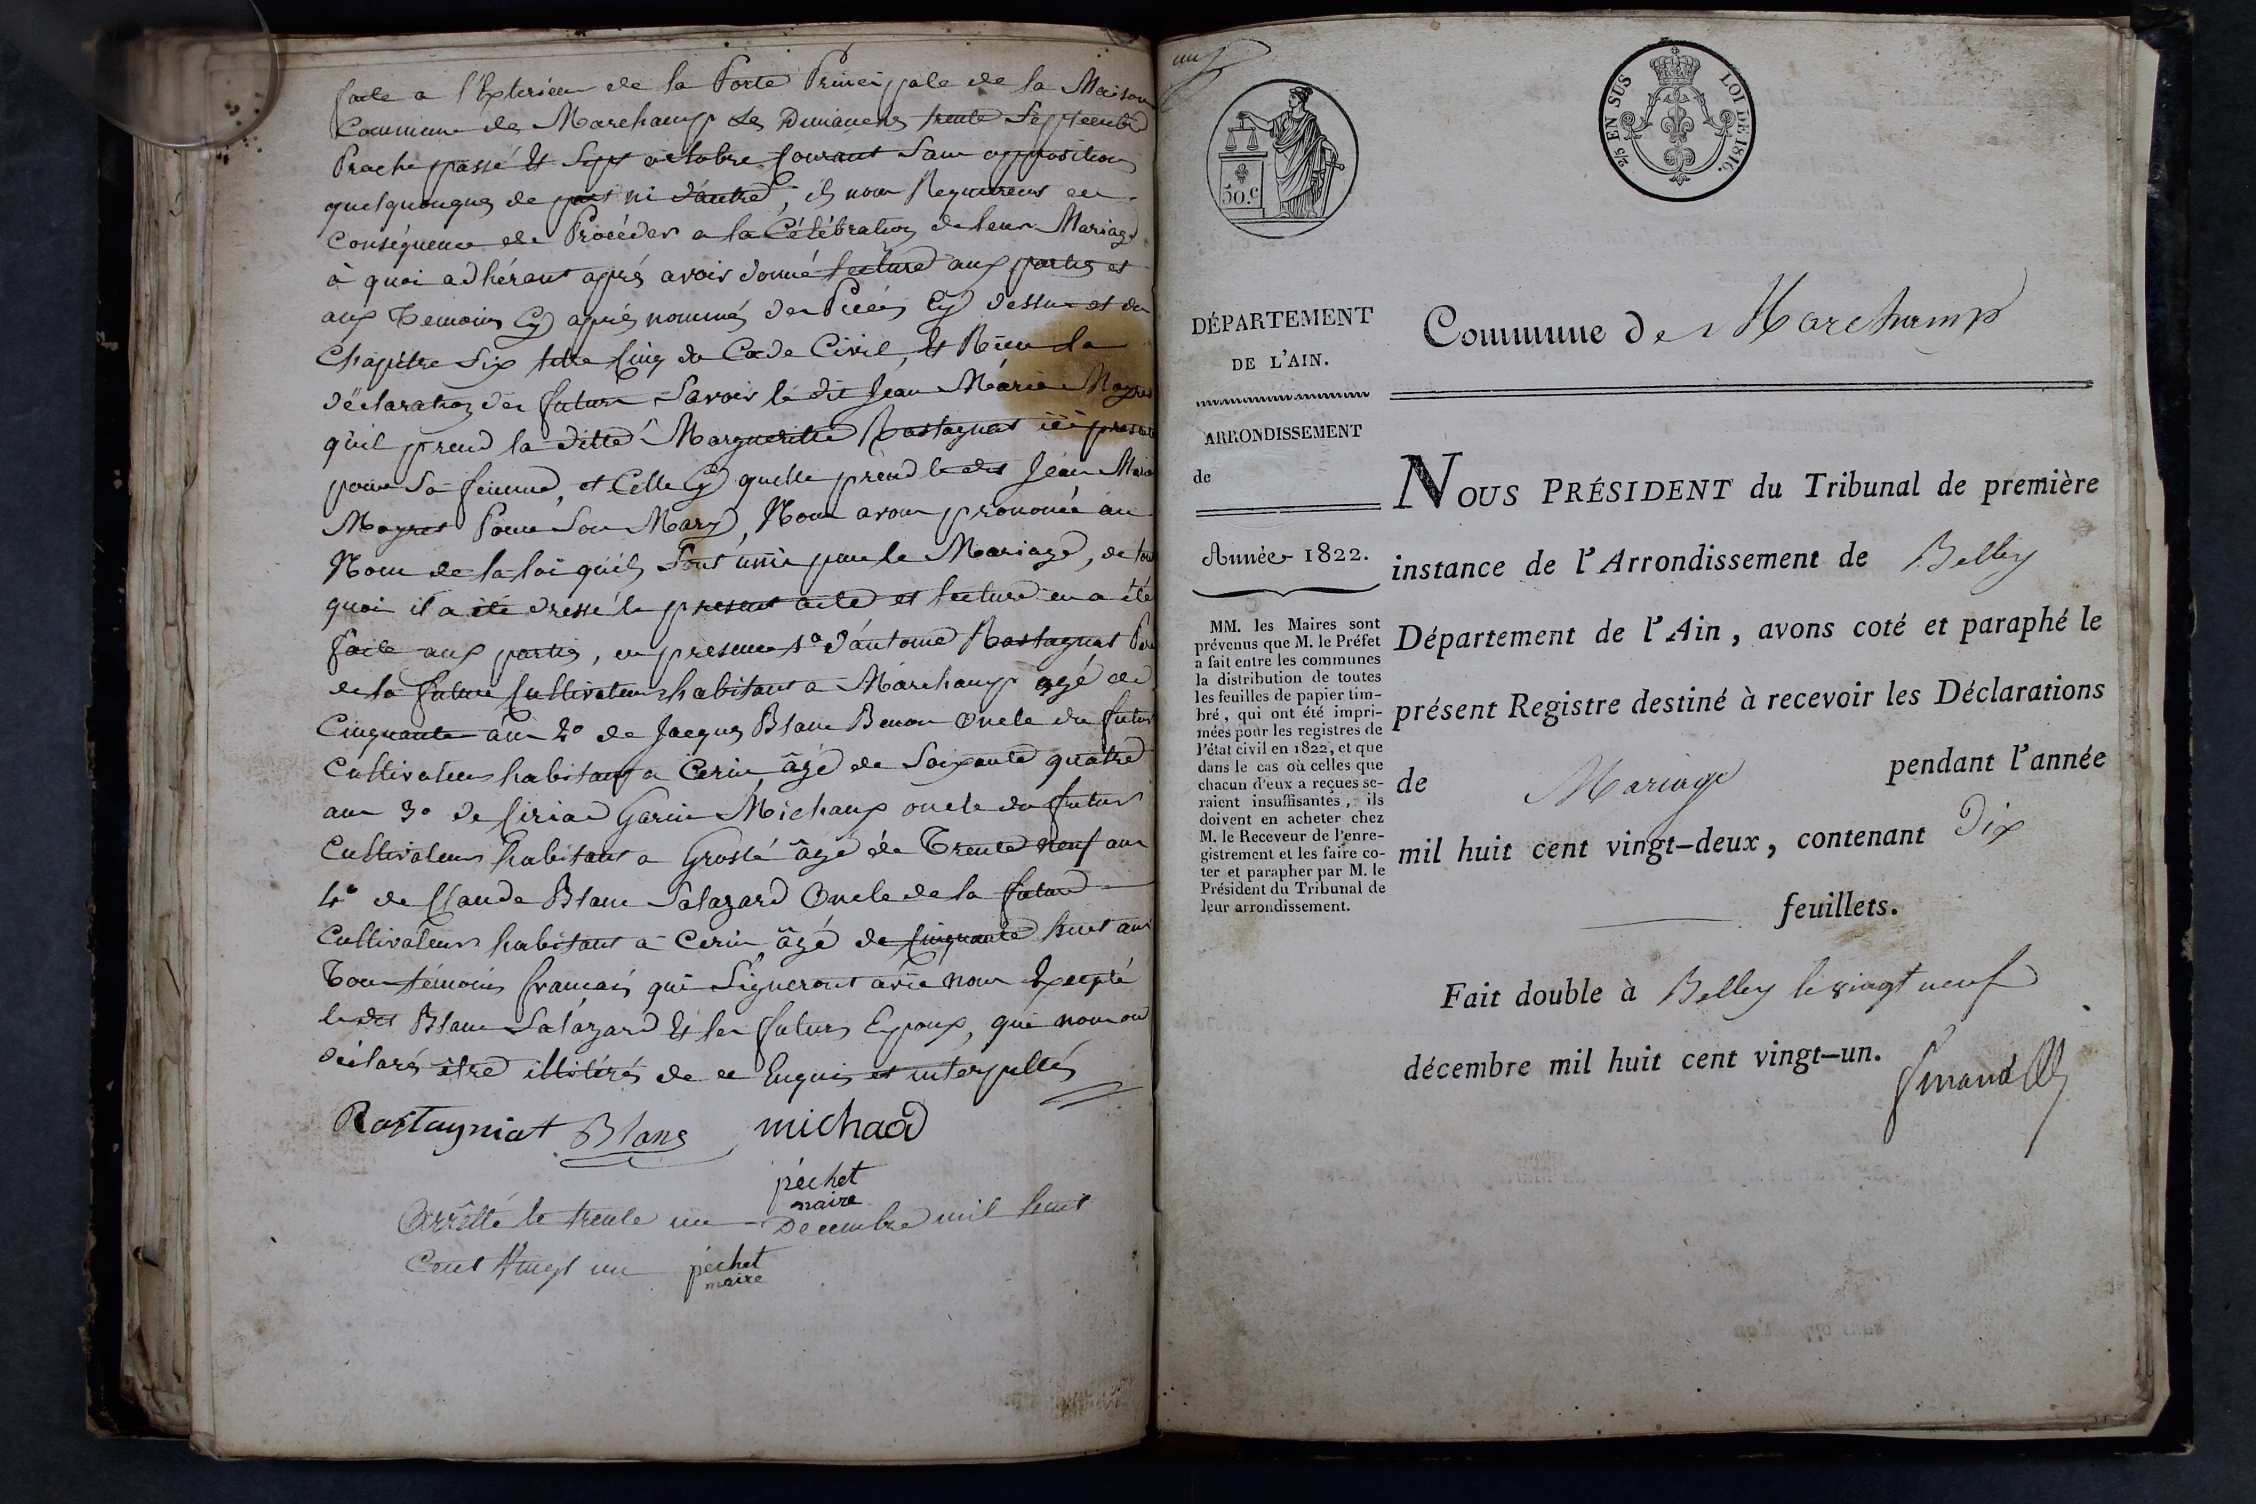 faite a l'Exterieur de la Porte Principale de la Maison
Commune de Marchamp les Dimanches trente Septembre
Proche passé et Sept octobre courant Sans opposition
quelquonques de part ni d'autre, ils nous Requierent en
Conséquence de Procéder a la Célébration de leur Mariage
à quoi adhérant après avoir donné lecture aux parties et
aux Temoins Cy après nommés des Pièces Cy dessus et du
Chapitre Six titre Cinq du Code Civil, et Reçu la
déclaration des futurs Savoir le dit Jean Marie
qu'il prend la ditte Margueritte Rostagnat ici presente
pour Sa femme, et Celle Cy quelle prend le dit Jean Marie
Pour Son Mary, Nous avons prononcé au
Nom de la loi qu'ils Sont unis par le Mariage, de tout
quoi il a été dressé le present acte et lecture en a été
faite aux parties, en presence 1º d'antoine Rostagnat Père
de la future Cultivateur habitant a Marchamp agé de
Cinquante ans 2º de Jacques Blanc Benon Oncle du futur
Cultivateur habitant a Cerin âgé de Soixante quatre
ans 3º de Garin Michaux oncle du futur
Cultivateur habitant a Groslé âgé de Trente neuf ans
4º de Claude Blanc Salazard Oncle de la future
Cultivateur habitant a Cerin âgé de Cinquante huit ans
Tous témoins français qui Signeront avec nous Excepté
le dit Blanc Salazard et les futurs Epoux, qui nous ont
déclarés être illitérés de ce Enquis et interpellés
Rostagniat Blanc michaud
péchet
maire
Arrêtté le trente un Decembre mil huit
Cent Vingt un péchet
maire
un
50.C
25 EN SUS
LOI DE 1816.
DÉPARTEMENT
DE L'AIN.
ARRONDISSEMENT
de
Année 1822.
MM. les Maires sont
prévenus que M. le Préfet
a fait entre les communes
la distribution de toutes
les feuilles de papier tim-
bré, qui ont été impri-
mées pour les registres de
l'état civil en 1822, et que
dans le cas où celles que
chacun d'eux a reçues se-
raient insuffisantes, ils
doivent en acheter chez
M. le Receveur de l'enre-
gistrement et les faire co-
ter et parapher par M. le
Président du Tribunal de
leur arrondissement.
Commune de Marchamp
NOUS PRÉSIDENT du Tribunal de première
instance de l'Arrondissement de Belley
Département de l'Ain, avons coté et paraphé le
présent Registre destiné à recevoir les Déclarations
de Mariage pendant l'année
mil huit cent vingt-deux, contenant Dix
feuillets.
Fait double à Belley le vingt neuf
décembre mil huit cent vingt-un.